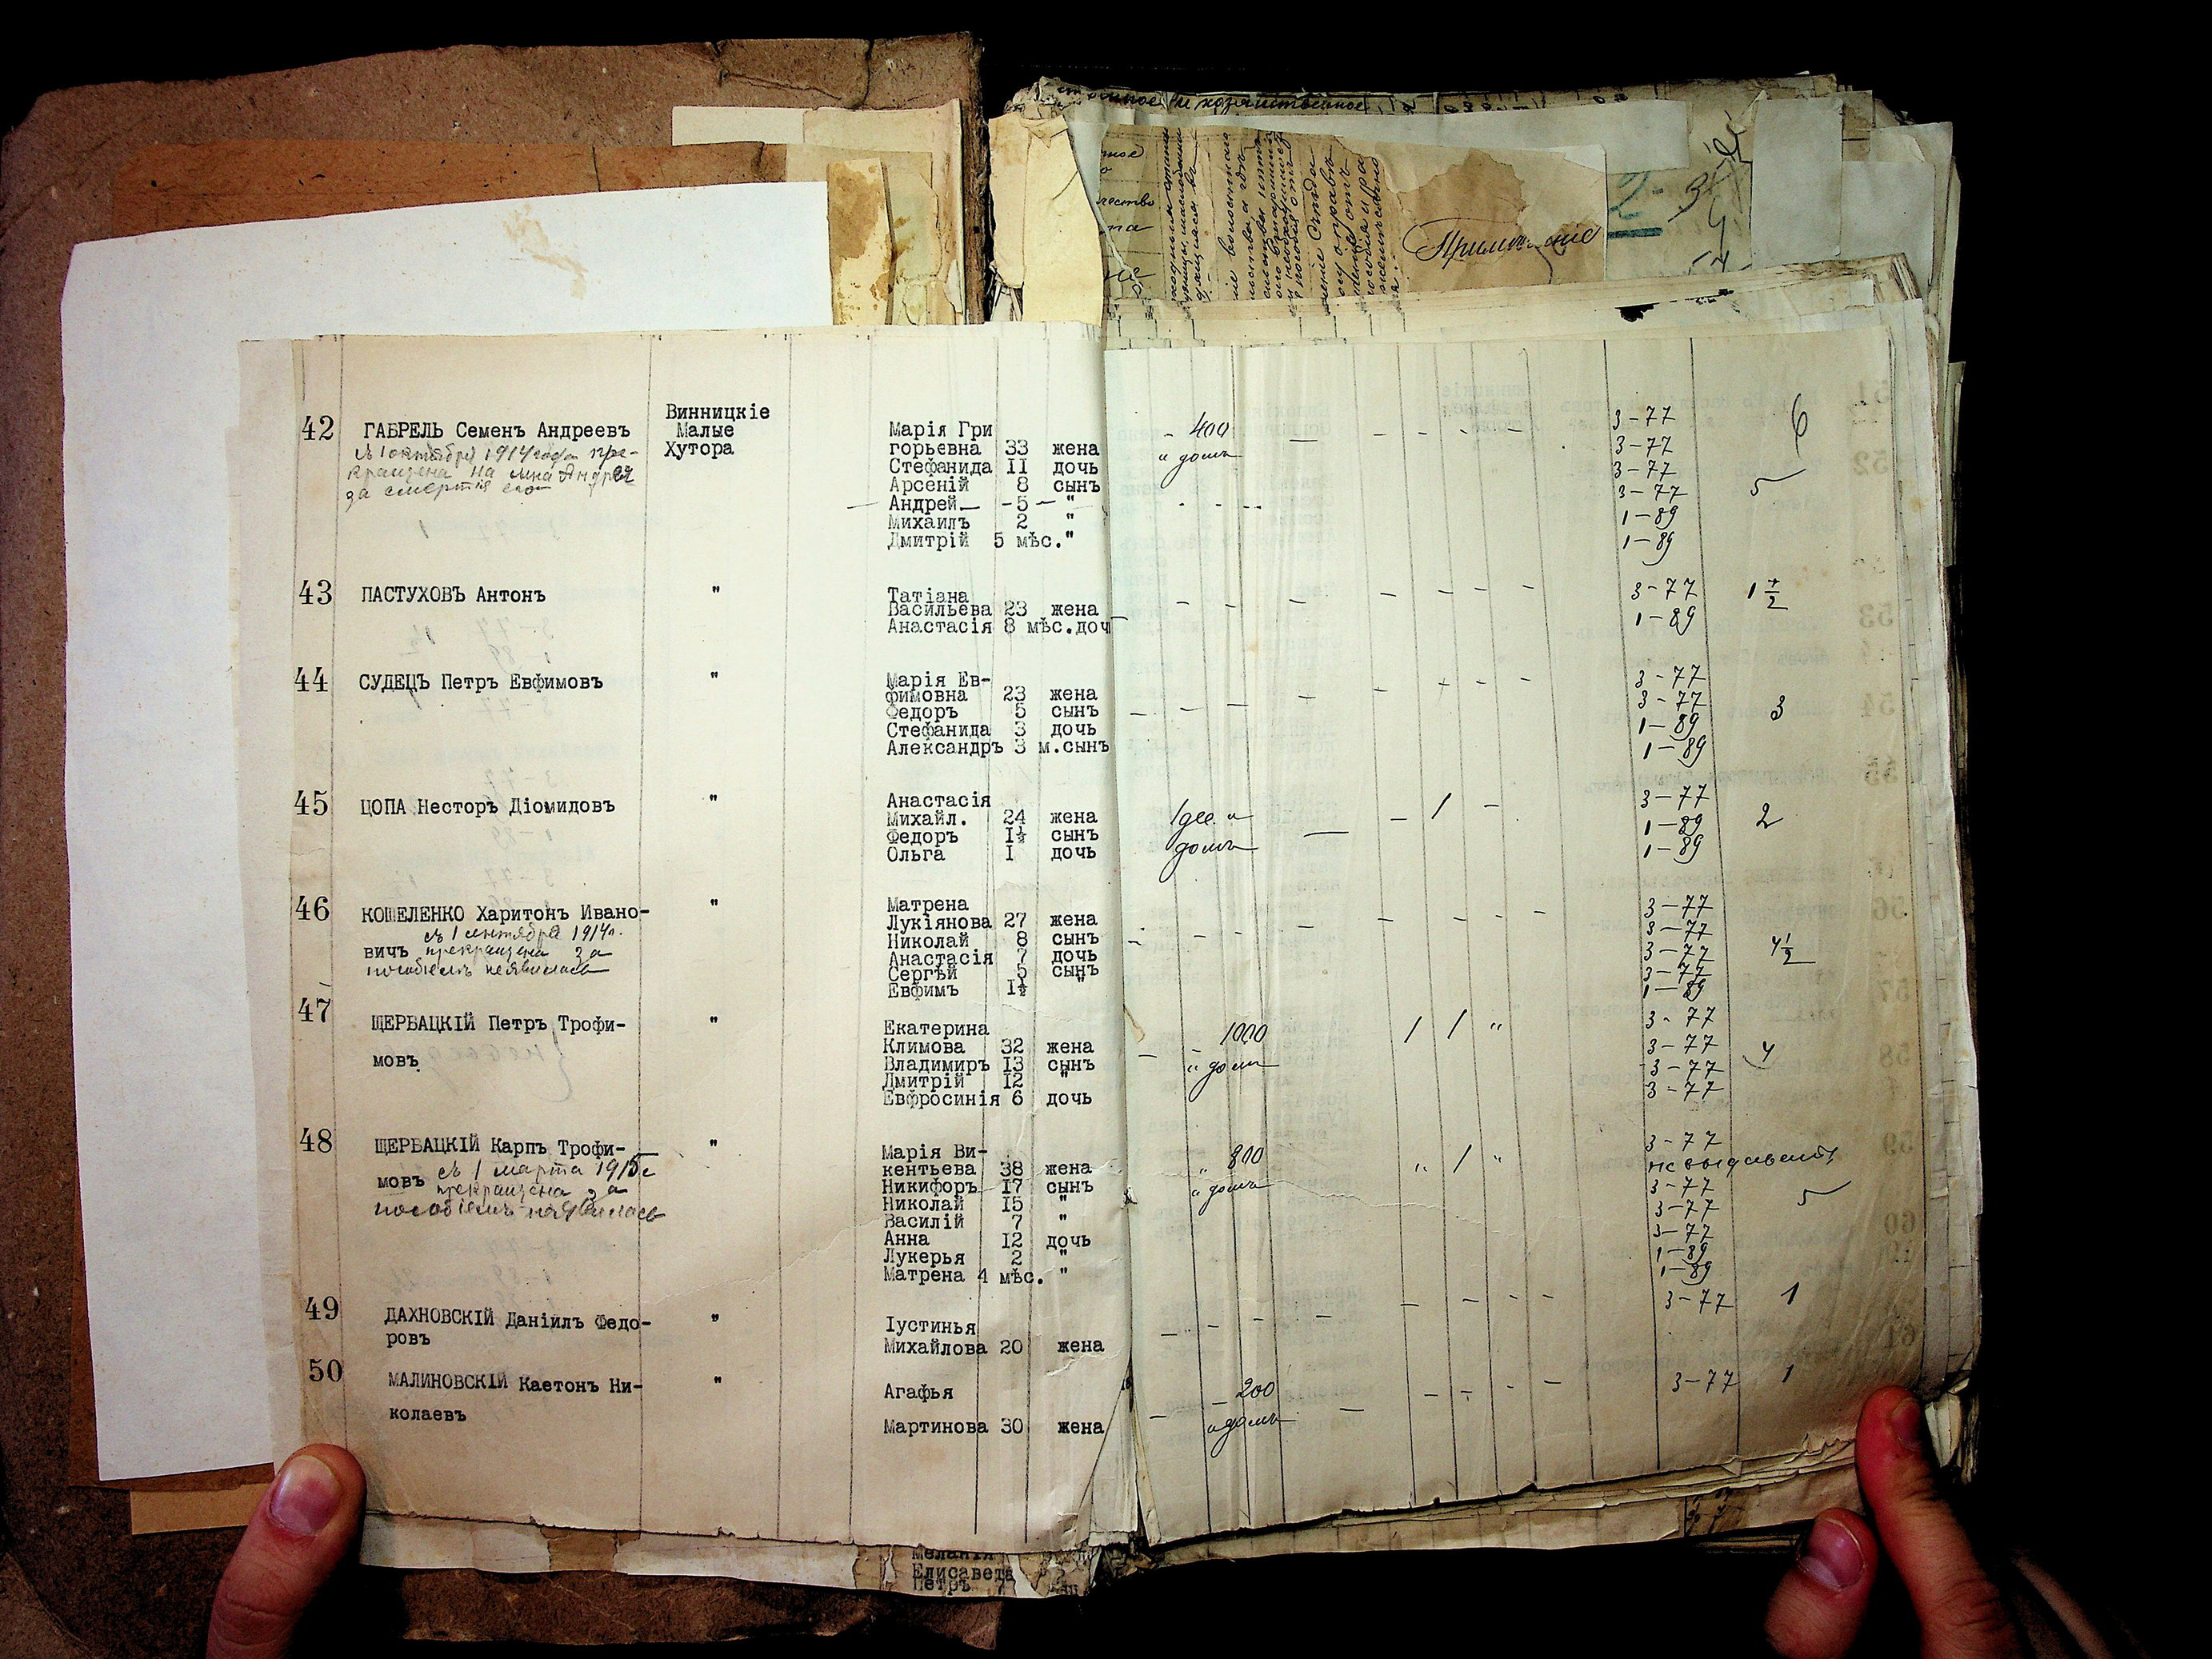 Примѣчаніе
42 ГАБРЕЛЬ Семенъ Андреевъ
съ 1 октября 1914 года пре-
кращена на сына Андрея
за смертію его
Винницкіе
Малые
Хутора
Марія Гри
горьевна 33 жена
Стефанида II дочь
Арсеній 8 сынъ
Андрей — -5- "
Михаилъ 2 "
Дмитрій 5 мѣс. "
- 400
и домъ
3-77
3-77
3-77
3-77
1-89
1-89
6
5
43 ПАСТУХОВЪ Антонъ "
Татіана
Васильева 23 жена
Анастасія 8 мѣс.доч
3-77
1-89
44 СУДЕЦЪ Петръ Евфимовъ "
Марія Ев-
фимовна 23 жена
Федоръ 5 сынъ
Стефанида 3 дочь
Александръ 3 м.сынъ
3-77
3-77
1-89
1-89
3
45 ЦОПА Несторъ Діомидовъ "
Анастасія
Михайл. 24 жена
Федоръ I½ сынъ
Ольга I дочь
1 дес. и
домъ
/ -
3-77
1-89
1-89
2
46 КОШЕЛЕНКО Харитонъ Ивано-
съ 1 сентября 1914 г.
вичъ прекращена за
пособіемъ неявилась
"
Матрена
Лукіянова 27 жена
Николай 8 сынъ
Анастасія 7 дочь
Сергѣй 5 сынъ
Евфимъ I½ "
3-77
3-77
3-77
3-77
1-89
4½
47 ЩЕРБАЦКІЙ Петръ Трофи-
мовъ
"
Екатерина
Климова 32 жена
Владимиръ 13 сынъ
Дмитрій 12 "
Евфросинія 6 дочь
1000
и домъ
/ / "
3-77
3-77
3-77
3-77
4
48 ЩЕРБАЦКІЙ Карпъ Трофи-
мовъ съ 1 марта 1915 г
прекращена за
пособіемъ неявилась
"
Марія Ви-
кентьева 38 жена
Никифоръ 17 сынъ
Николай 15 "
Василій 7 "
Анна 12 дочь
Лукерья 2 "
Матрена 4 мѣс. "
" 800
и домъ
" / "
3-77
не выдавать
3-77
3-77
3-77
1-89
1-89
5
49 ДАХНОВСКІЙ Даніилъ Федо-
ровъ
"
Іустинья
Михайлова 20 жена
3-77
1
50 МАЛИНОВСКІЙ Каетонъ Ни-
колаевъ
"
Агафья
Мартинова 30 жена
- 200
и домъ
3-77
1
Меланія
Елисавета
Петръ 7